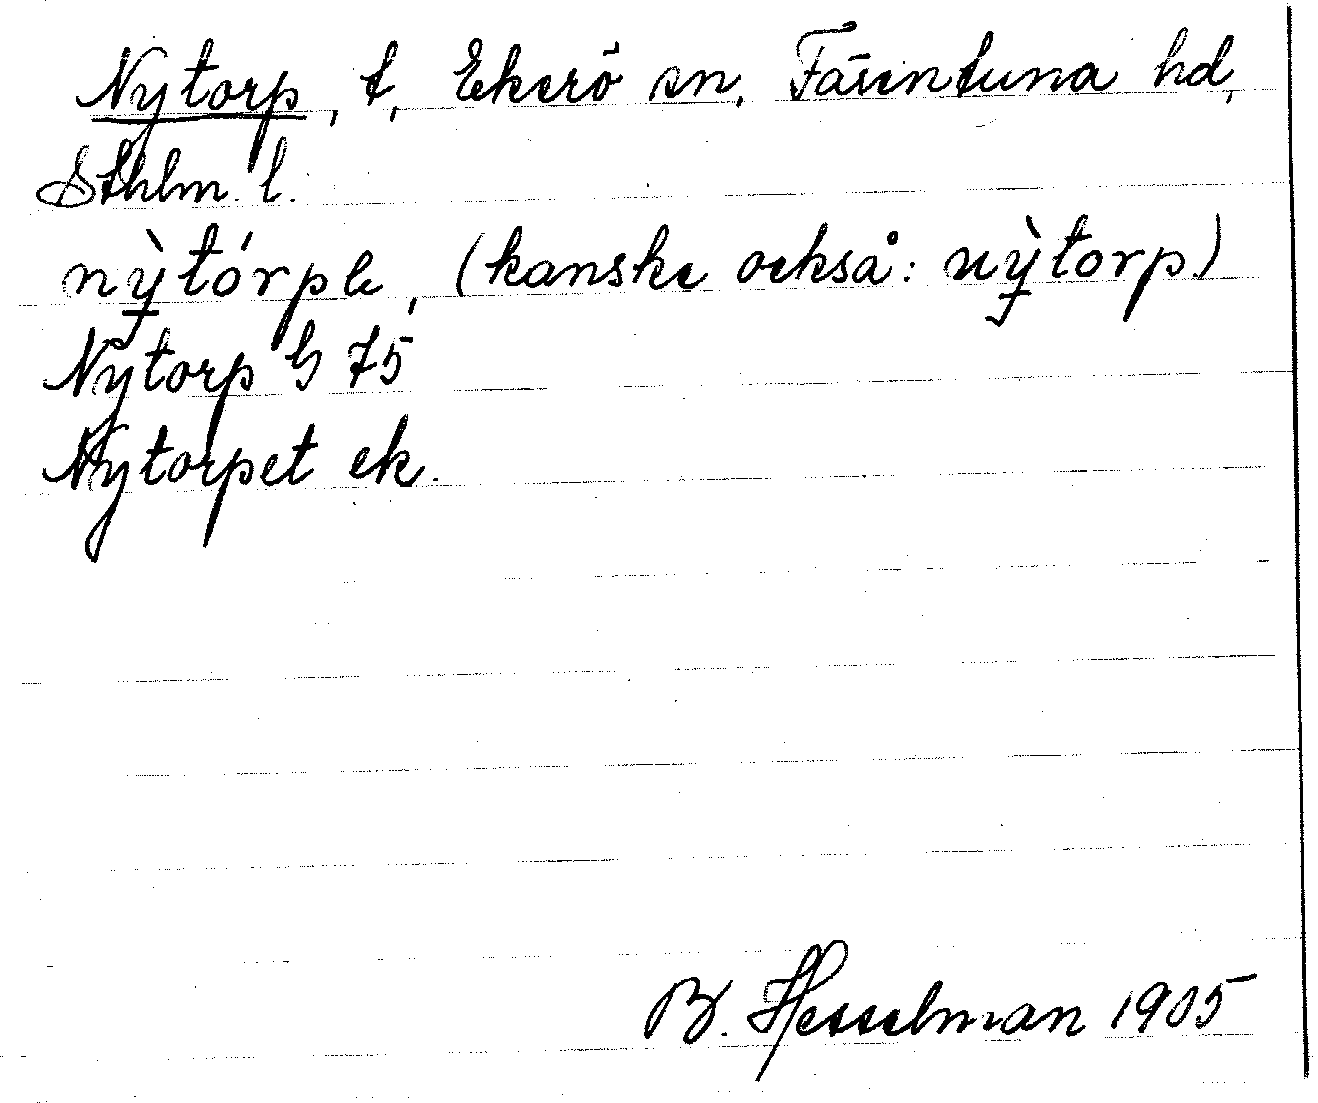 Nytorp, t, Ekerö sn, Färentuna hd,
Sthlm. l.
nỳtórpe, (kanske också: nỳtorp)
Nytorp G 75
Nytorpet ek.
B. Hesselman 1905